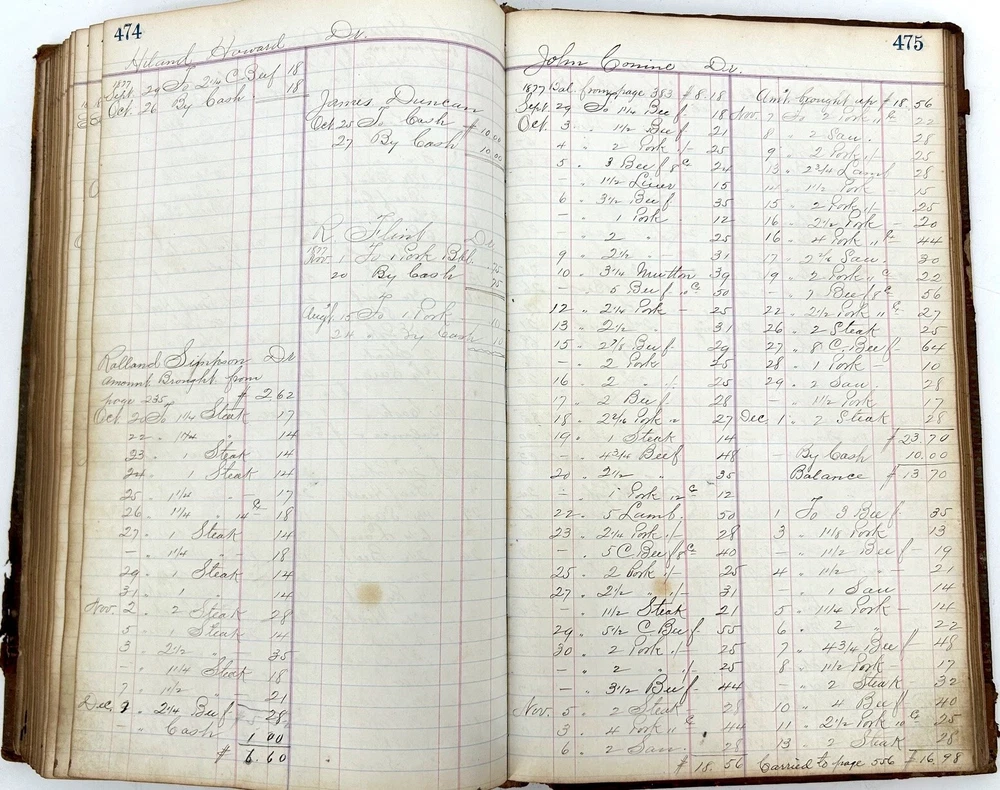 474
Hiland Howard Dr.
1877
Sept. 29 To 2 1/4 C. Beef 18
Oct. 26 By Cash 18
James Duncan
Oct 25 To Cash $ 10.00
27 By Cash 10.00
R Flint Dr
1877
Nov 1 To 1 Pork Bkl. 75
20 By Cash 75
Aug. 15 To 1 Pork 10
24 " By Cash 10
Rolland Simpson Dr
Amount Brought from
page 235 $ 2.62
Oct 20 To 1 1/4 Steak 17
22 " 1 1/4 " 14
23 " 1 Steak 14
24 " 1 Steak 14
25 " 1 1/4 " 17
26 " 1 1/4 " 14c 18
27 " 1 Steak 14
— " 1 1/4 " 18
29 " 1 Steak 14
31 " 1 " 14
Nov. 2 " 2 Steak 28
5 " 1 Steak 14
3 " 2 1/2 " 35
— " 1 1/4 Steak 18
7 " 1 1/2 " 21
Dec. 1 " 2 1/4 Beef 28
— " Cash 1 00
$ 6.60
475
John Conine Dr.
1877 Bal. from page 383 $ 8.18
Sept. 29 To 1 1/4 Beef 18
Oct. 3 " 1 1/2 Beef 21
4 " 2 Pork " 25
5 " 3 Beef 8c 24
— " 1 1/2 Liver 15
6 " 3 1/2 Beef 35
— " 1 Pork 12
— " 2 " 25
9 " 2 1/2 " 31
10 " 3 1/4 Mutton 39
— " 5 Beef "c 50
12 " 2 1/4 Pork 25
13 " 2 1/2 " 31
15 " 2 7/8 Beef 29
— " 2 Pork 25
16 " 2 " 25
17 " 2 Beef 28
18 " 2 1/16 Pork " 27
19 " 1 Steak 14
— " 4 3/4 Beef 48
20 " 2 1/2 " 35
— " 1 Pork 12c 12
22 " 5 Lamb. 50
23 " 2 1/4 Pork 28
— " 5 C. Beef 8c 40
25 " 2 Pork 25
27 " 2 1/2 " 31
— " 1 1/2 Steak 21
29 " 5 1/2 C Beef 55
30 " 2 Pork 25
— " 2 " 25
— " 3 1/2 Beef 44
Nov. 5 " 2 Steak 28
3 " 4 Pork "c 44
6 " 2 Sau. 28
$ 18. 56
Am't brought up $ 18. 56
Nov. 7 To 2 Pork "c 22
8 " 2 Sau. 28
9 " 2 Pork 25
13 " 2 3/4 Lamb 28
14 " 1 1/2 Pork 15
15 " 2 Pork 25
16 " 2 1/2 Pork 20
16 " 4 Pork "c 44
17 " 2 Sau. 30
19 " 2 Pork "c 22
— " 7 Beef 8c 56
22 " 2 1/2 Pork "c 27
26 " 2 Steak 25
27 " 8 C. Beef 64
28 " 1 Pork 10
29 " 2 Sau. 28
— " 1 1/2 Pork 17
Dec. 1 " 2 Steak 28
$ 23.70
— By Cash 10.00
Balance $ 13 70
1 To 3 Beef 35
3 " 1 1/8 Pork 13
— " 1 1/2 Beef 19
4 " 1 1/2 " 21
— " 1 Sau 14
5 " 1 1/4 Pork 14
6 " 2 " 22
7 " 4 3/4 Beef 48
8 " 1 1/2 Pork 17
" 2 Steak 32
10 " 4 Beef 40
11 " 2 1/2 Pork 10c 25
13 " 2 Steak 28
Carried to page 556 $ 16,98